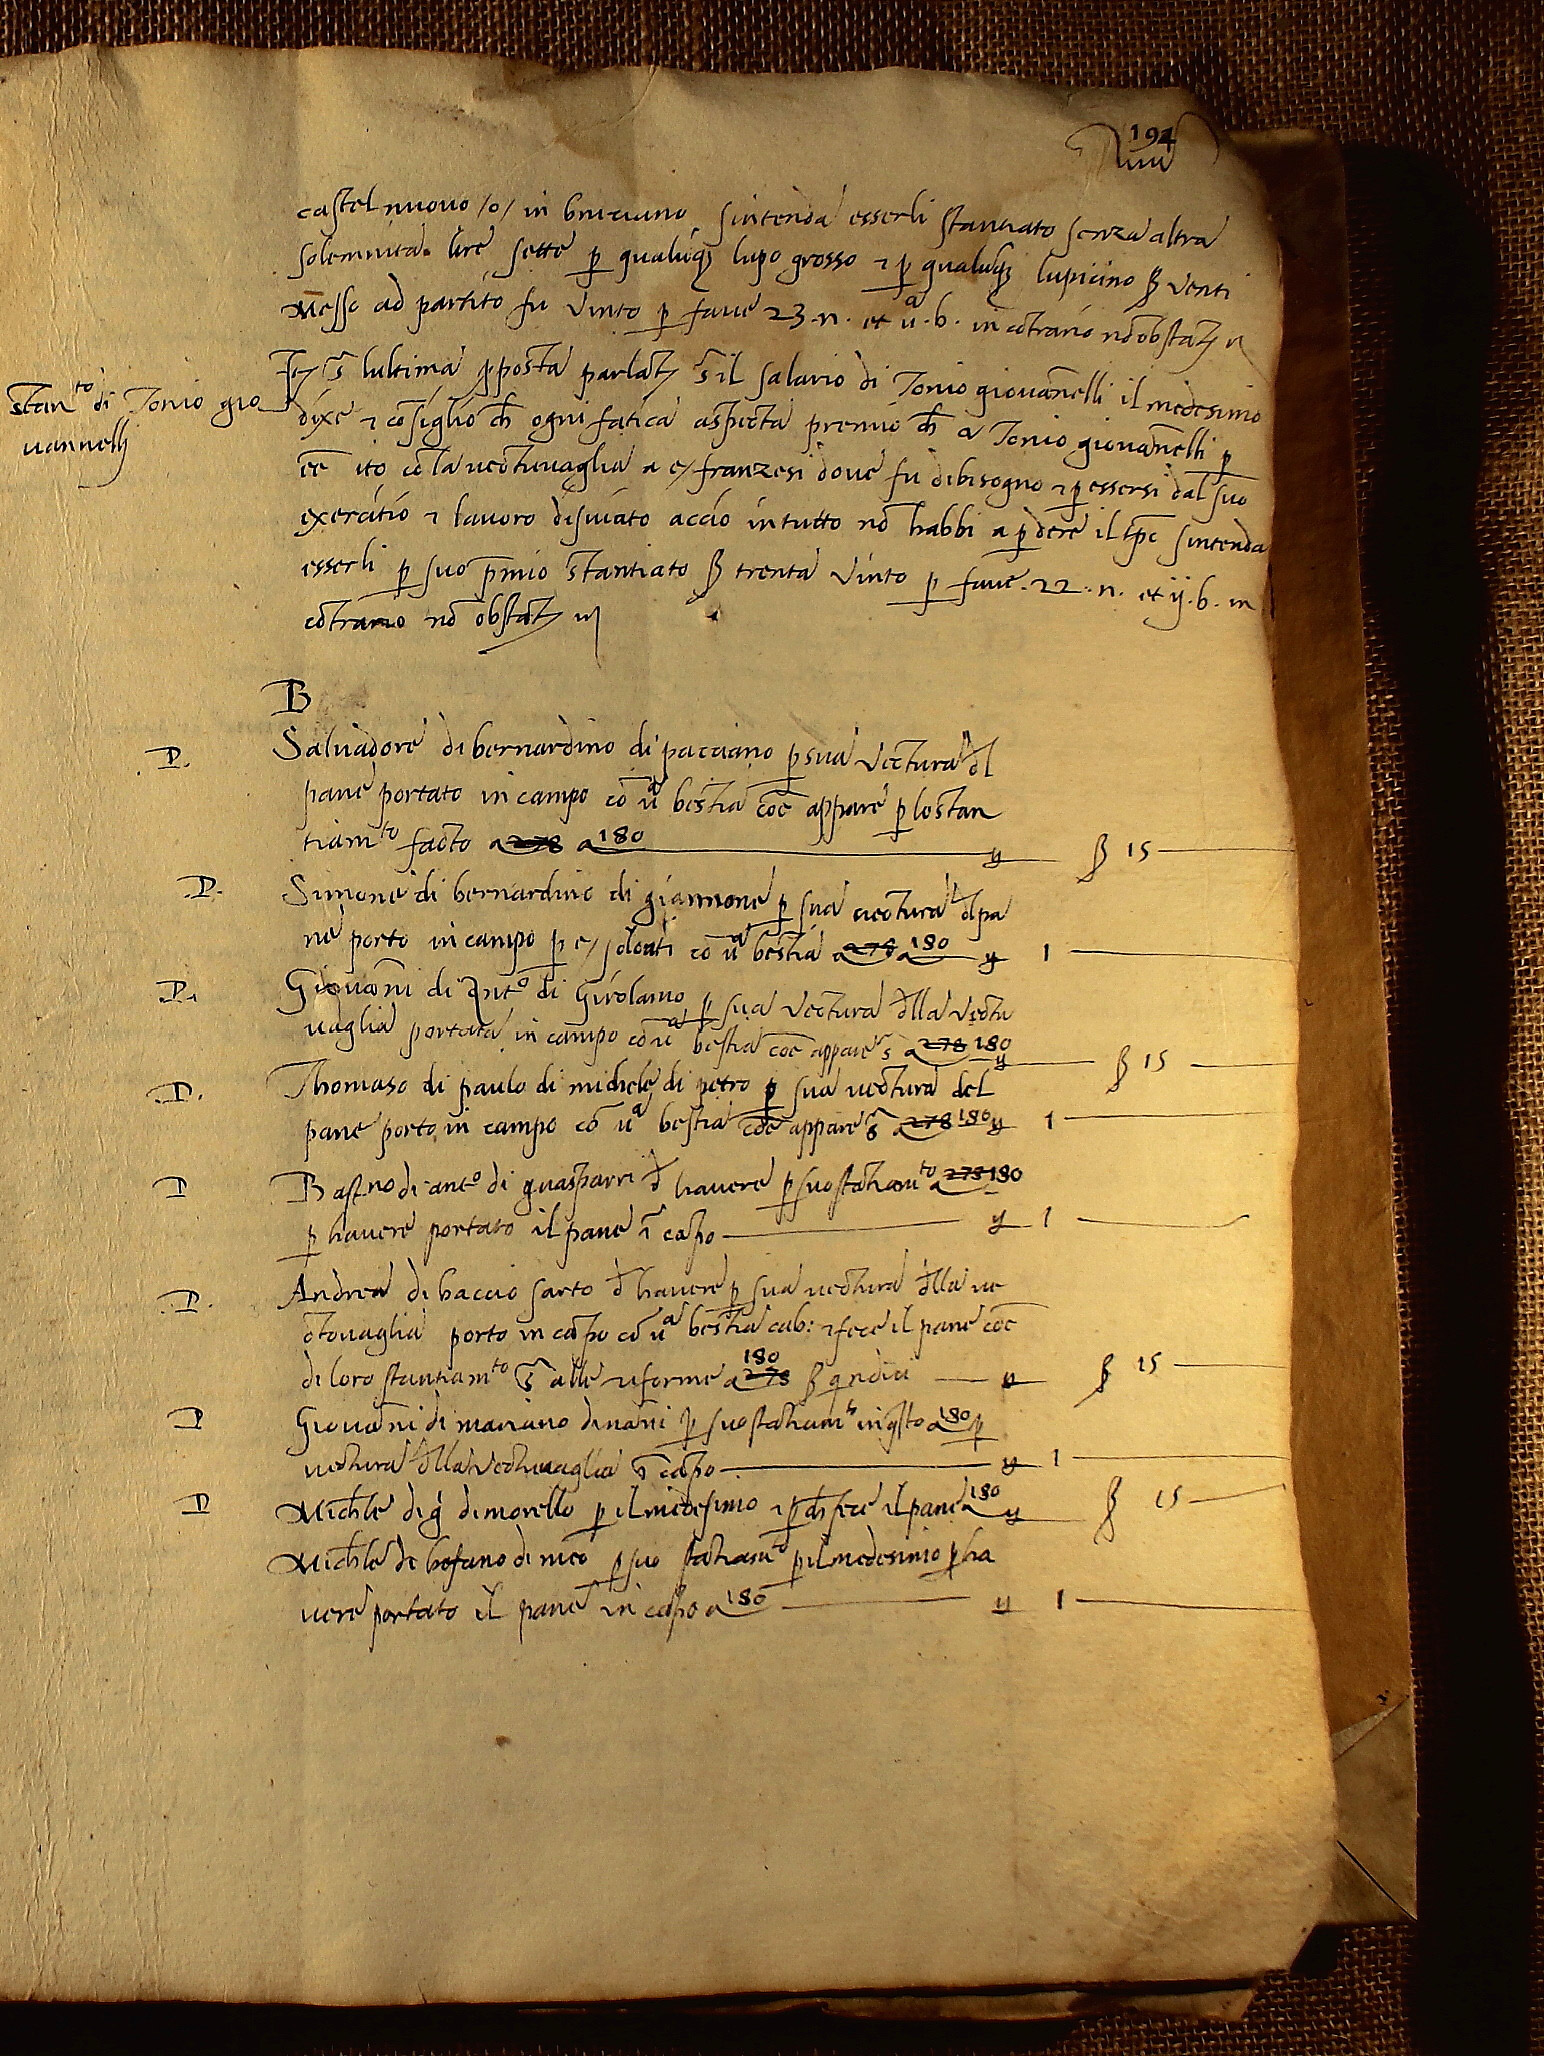 194
castelnuouo /o/ in bruciano sintenda esserli stantiato senza altra
solemnita. lire sette p qualuq3 lupo grosso & p qualuq3 lupicino ß venti
Messo ad partito fu vinto p faue 23.n. et ūa.b. in cōtrario nō obstāt3
Stanto di Tonio gio
uannelli
It3 s̄ lultima pposta parlāt3 s̄ il salario di Tonio giouānelli il medesimo
dixe & cōsiglio ch̄ ogni fatica aspecta premio ch̄ a Tonio giouānelli p
eē ito cō la vectuuaglia a e/ franzesi doue fu dibisogno & p essersi dal suo
exercitio & lauoro disuiato accio in tutto nō habbi a pdere il tp̄o sintenda
esserli p suo p̄mio stantiato ß trenta vinto p faue .22.n. et ij.b. in
cōtrario nō obstāt3
B
P. Saluadore di bernardino di pacciano p sua vectura dl
pane portato in campo cō ūa bestia coē appare p lo stan
tiamto facto a 278 a 180 ß 15
P. Simone di bernardino di giannone p sua uectura dl pa
ne porto in campo p e/ soldati cō ūa bestia a 278 a 180 1
P. Giouāni di Anto di Girolamo p sua vectura dlla vectu
uaglia portata in campo cō ūa bestia coē appare s̄ a 278 180 ß 15
P. Thomaso di paulo di michele di petro p sua uectura del
pane porto in campo cō ūa bestia coē appare s̄ a 278 180 1
P Bastno di anto di guasparri d̄ hauere p suo stātiamto a 278 180
p hauere portato il pane ī cāpo 1
P. Andrea di baccio sarto d̄ hauere p sua uectura dlla ue
ctouaglia porto in cāpo cō ūa bestia cab: & fece il pane coē
di loro stantiamto s̄ alle riforme a 278 180 ß qndici ß 15
P Giouāni di mariano di nāni p suo stātiamto in qsto a 180 p
uectura dlla vectuuaglia ī cāpo 1
P Mich̄le di g̊ di morello p il medesimo & p ch̄ fece il pane a 180 ß 15
Mich̄le di befano di meo p suo stātiamto p il medesimo p ha
uere portato il pane in cāpo a 180 1